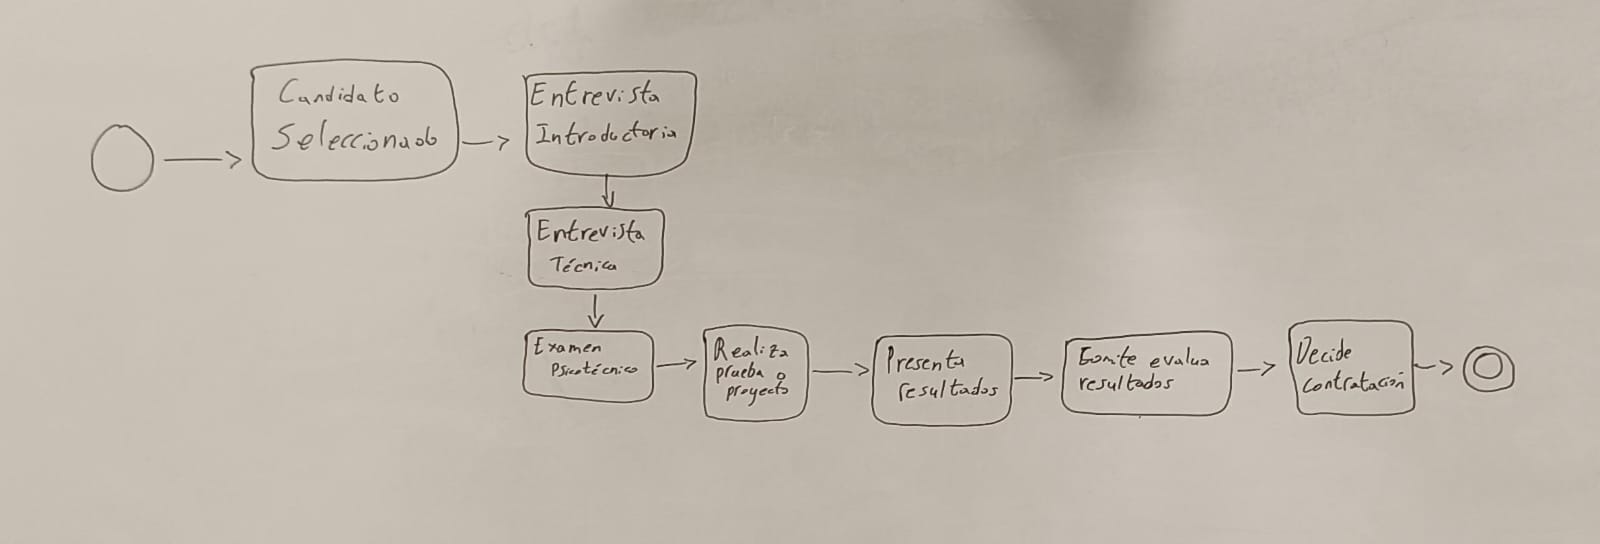 Candidato
Seleccionado
Entrevista
Introductoria
Entrevista
Técnica
Examen
Psicotécnico
Realiza
prueba o
proyecto
Presenta
resultados
Comite evalua
resultados
Decide
contratación